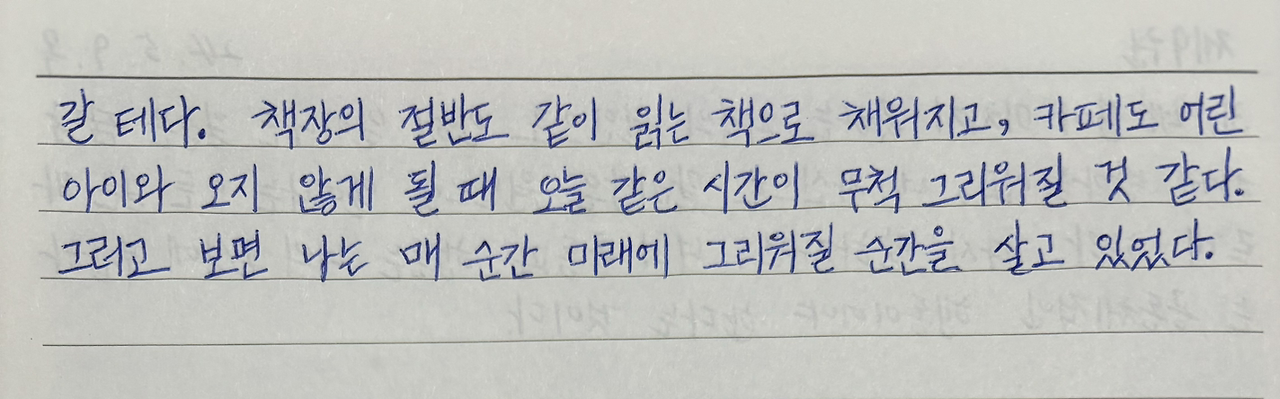 갈 테다. 책장의 절반도 같이 읽는 책으로 채워지고, 카페도 어린
아이와 오지 않게 될 때 오늘 같은 시간이 무척 그리워질 것 같다.
그러고 보면 나는 매 순간 미래에 그리워질 순간을 살고 있었다.